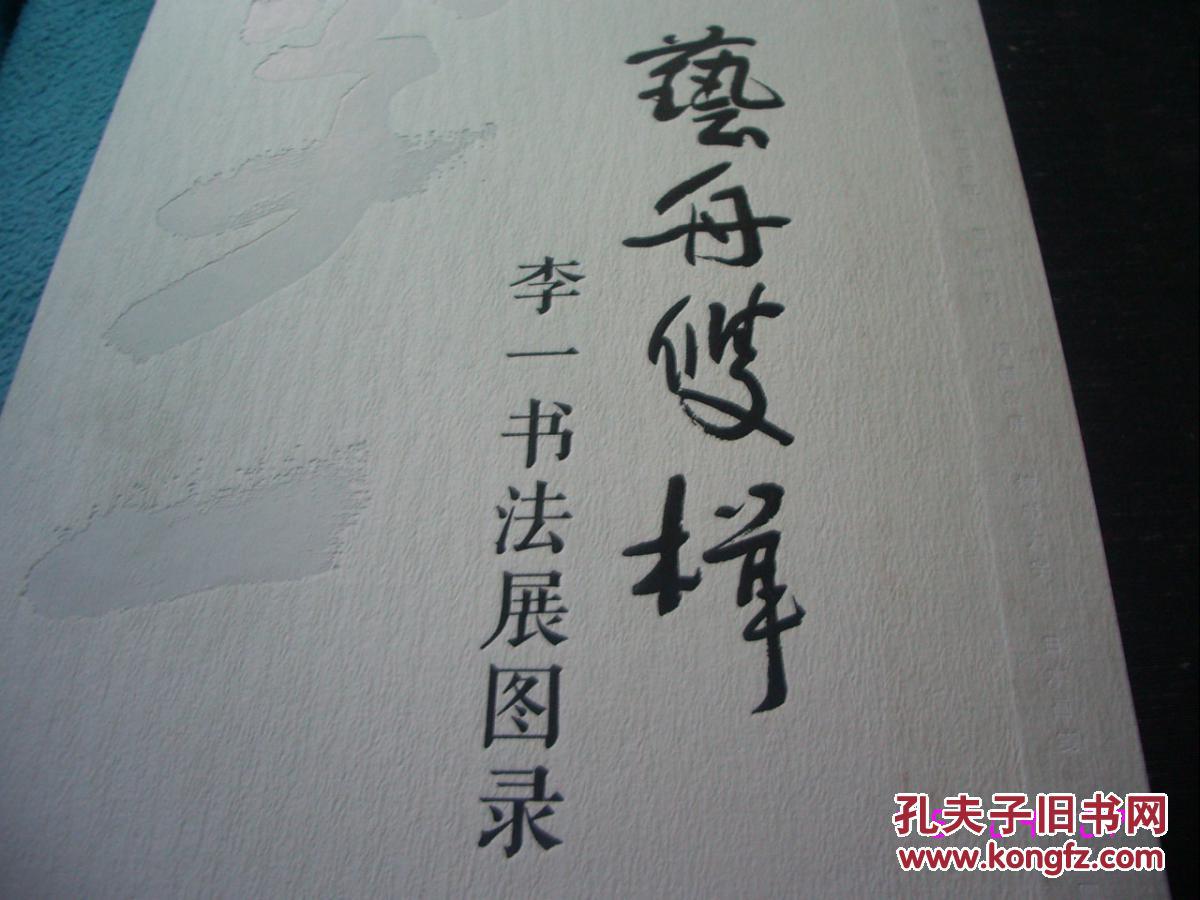 藝舟雙楫
李一书法展图录
孔夫子旧书网
www.kongfz.com